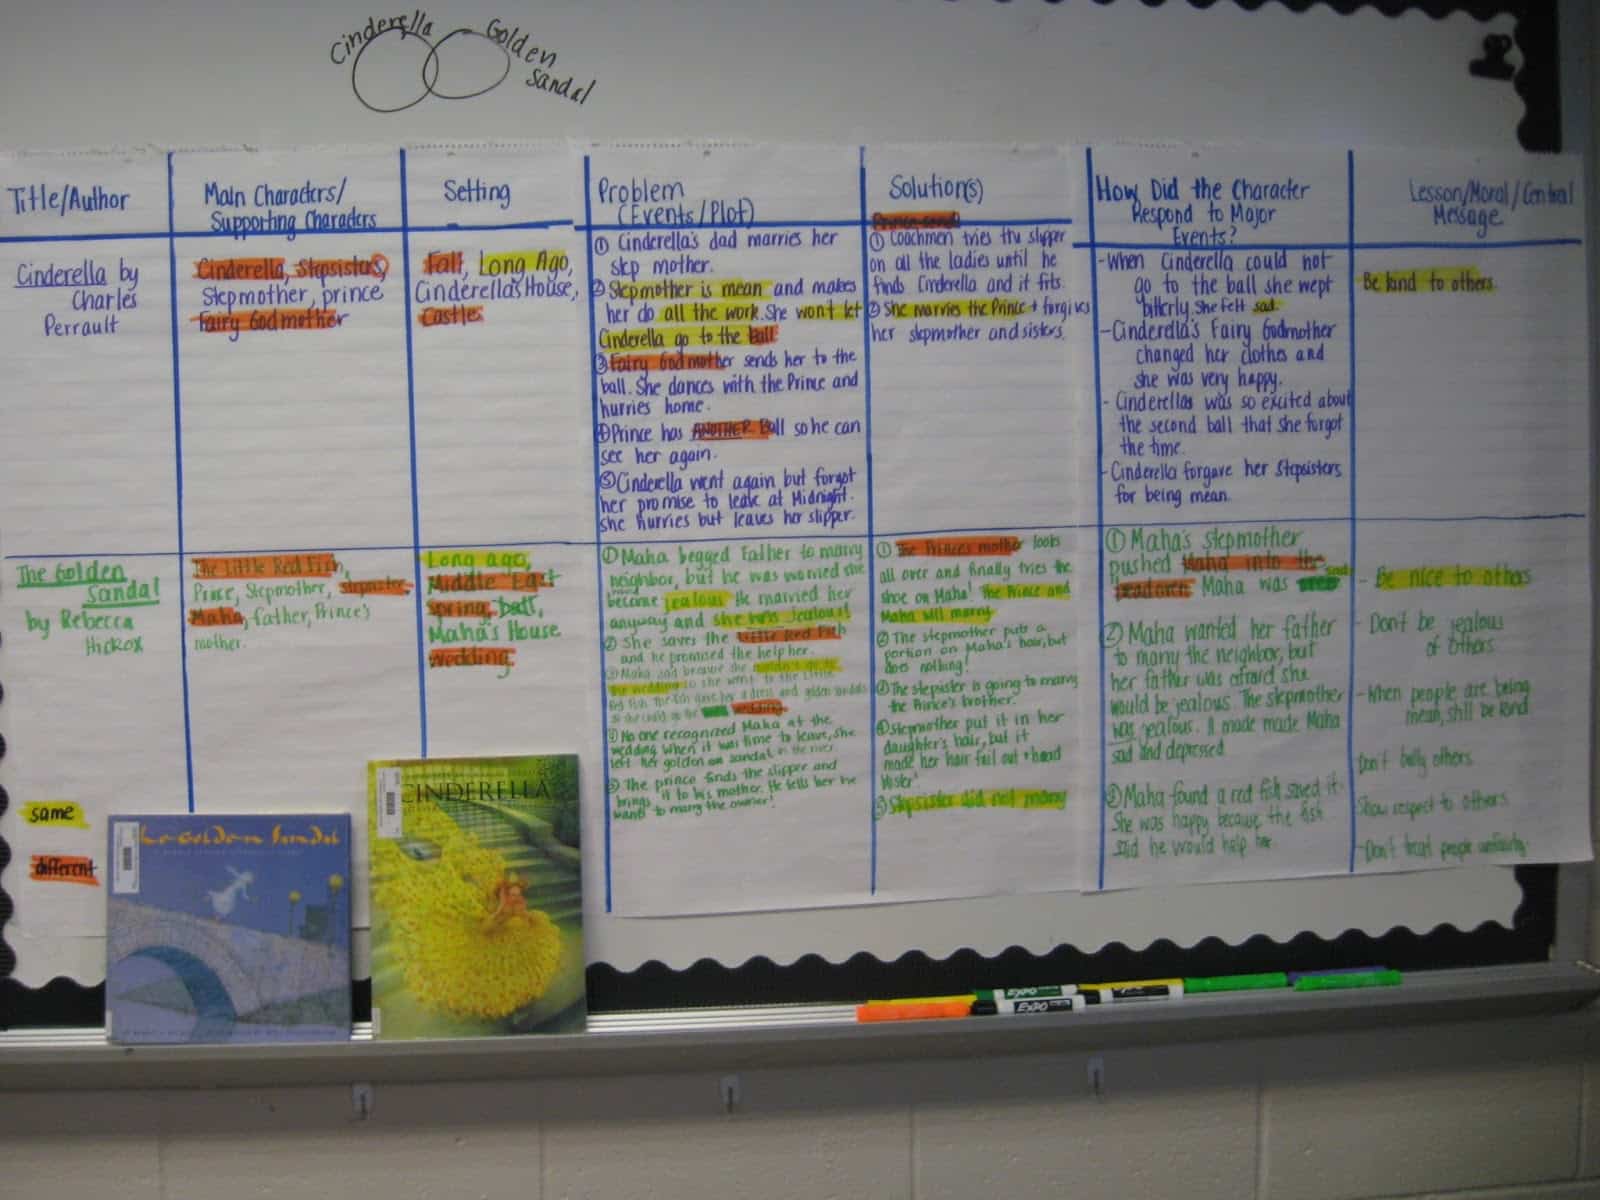 Cinderella
Golden
Sandal
Title/Author
Main Characters/
Supporting Characters
Setting
Problem
(Events/Plot)
Solution(s)
How Did the Character
Respond to Major
Events?
Lesson/Moral/Central
Message
Cinderella by
Charles
Perrault
Cinderella, Stepsisters,
Stepmother, prince
Fairy Godmother
Fall, Long Ago,
Cinderella's House,
Castles
① Cinderella's dad marries her
step mother.
② Stepmother is mean and makes
her do all the work. She won't let
Cinderella go to the ball
③ Fairy Godmother sends her to the
ball. She dances with the Prince and
hurries home.
④ Prince has ANOTHER Ball so he can
see her again.
⑤ Cinderella went again but forgot
her promise to leave at Midnight.
She hurries but leaves her slipper.
① Coachmen tries the slipper
on all the ladies until he
finds Cinderella and it fits.
② She marries the Prince + forgives
her stepmother and sisters.
- When Cinderella could not
go to the ball she wept
bitterly. She felt sad.
- Cinderella's Fairy Godmother
changed her clothes and
she was very happy.
- Cinderellas was so excited about
the second ball that she forgot
the time.
- Cinderella forgave her Stepsisters
for being mean.
Be kind to others.
The Golden
Sandal
by Rebecca
Hickox
The Little Red Fish,
Prince, Stepmother, stepsister,
Maha, father, Prince's
mother.
Long ago,
Middle East
Spring,
Maha's House
wedding
① Maha begged Father to marry
neighbor, but he was worried she
become jealous He married her
anyway and she was jealous!
② She saves the Little Red Fish
and he promised the help her.
Maha sad because she
the wedding so she went to the Little
Red Fish. The fish gave her a dress and golden sandals
so she could go the wedding.
No one recognized Maha at the
wedding when it was time to leave, she
left her golden sandal in the river
The prince finds the slipper and
brings it to his mother. He tells her he
wants to marry the owner!
① The Princes mother looks
all over and finally tries the
shoe on Maha! The Prince and
Maha will marry
② The stepmother puts a
portion on Maha's hair, but
does nothing!
The stepister is going to marry
the Prince's brother.
Stepmother put it in her
daughter's hair, but it
made her hair fall out + head
blister!
Stepsister did not marry
① Maha's stepmother
pushed Maha into the
Maha was sad
② Maha wanted her father
to marry the neighbor, but
her father was afraid she
would be jealous. The stepmother
was jealous. It made made Maha
sad and depressed
③ Maha found a red fish saved it.
She was happy because the fish
said he would help her.
- Be nice to others
- Don't be jealous
of others
- When people are being
mean, still be kind
Don't bully others
Show respect to others
- Don't treat people unfairly.
same
different
The Golden Sandal
CINDERELLA
EXPO
EXPO